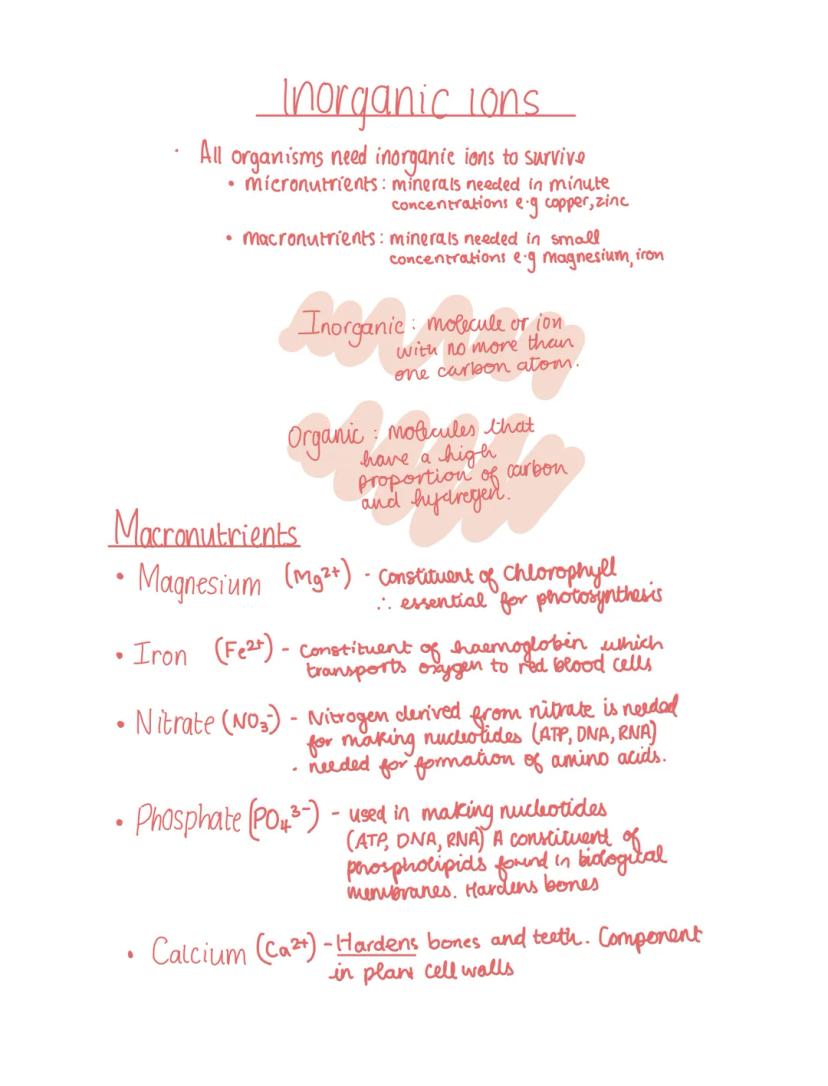 Inorganic ions
· All organisms need inorganic ions to survive
• micronutrients: minerals needed in minute
concentrations e.g copper, zinc
• macronutrients: minerals needed in small
concentrations e.g magnesium, iron
Inorganic: molecule or ion
with no more than
one carbon atom.
Organic: molecules that
have a high
proportion of carbon
and hydrogen.
Macronutrients
• Magnesium (Mg²⁺) - Constituent of chlorophyll
∴ essential for photosynthesis
• Iron (Fe²⁺) - Constituent of haemoglobin which
transports oxygen to red blood cells
• Nitrate (NO₃⁻) - Nitrogen derived from nitrate is needed
for making nucleotides (ATP, DNA, RNA)
· needed for formation of amino acids.
• Phosphate (PO₄³⁻) - used in making nucleotides
(ATP, DNA, RNA) A constituent of
phospholipids found in biological
membranes. Hardens bones
• Calcium (Ca²⁺) - Hardens bones and teeth. Component
in plant cell walls